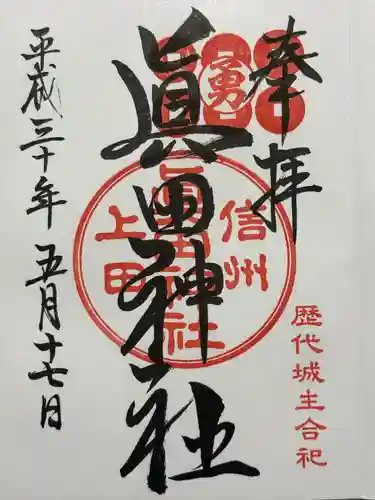 奉拝
歴代城主合祀
勇
眞田神社
信州
上田
眞田神社
平成三十年五月十七日